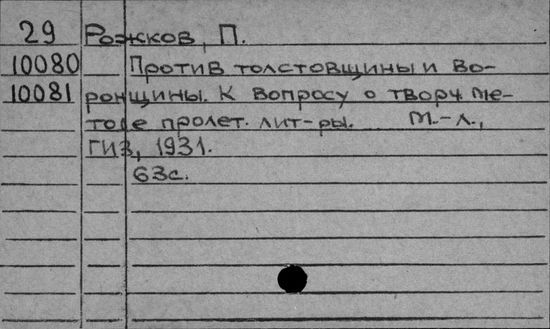 29 Рожков, П.
10080 Против толстовщины и во-
10081 ронщины. К вопросу о творч. ме-
тоде пролет. лит-ры. М.-Л.,
ГИЗ, 1931.
63с.